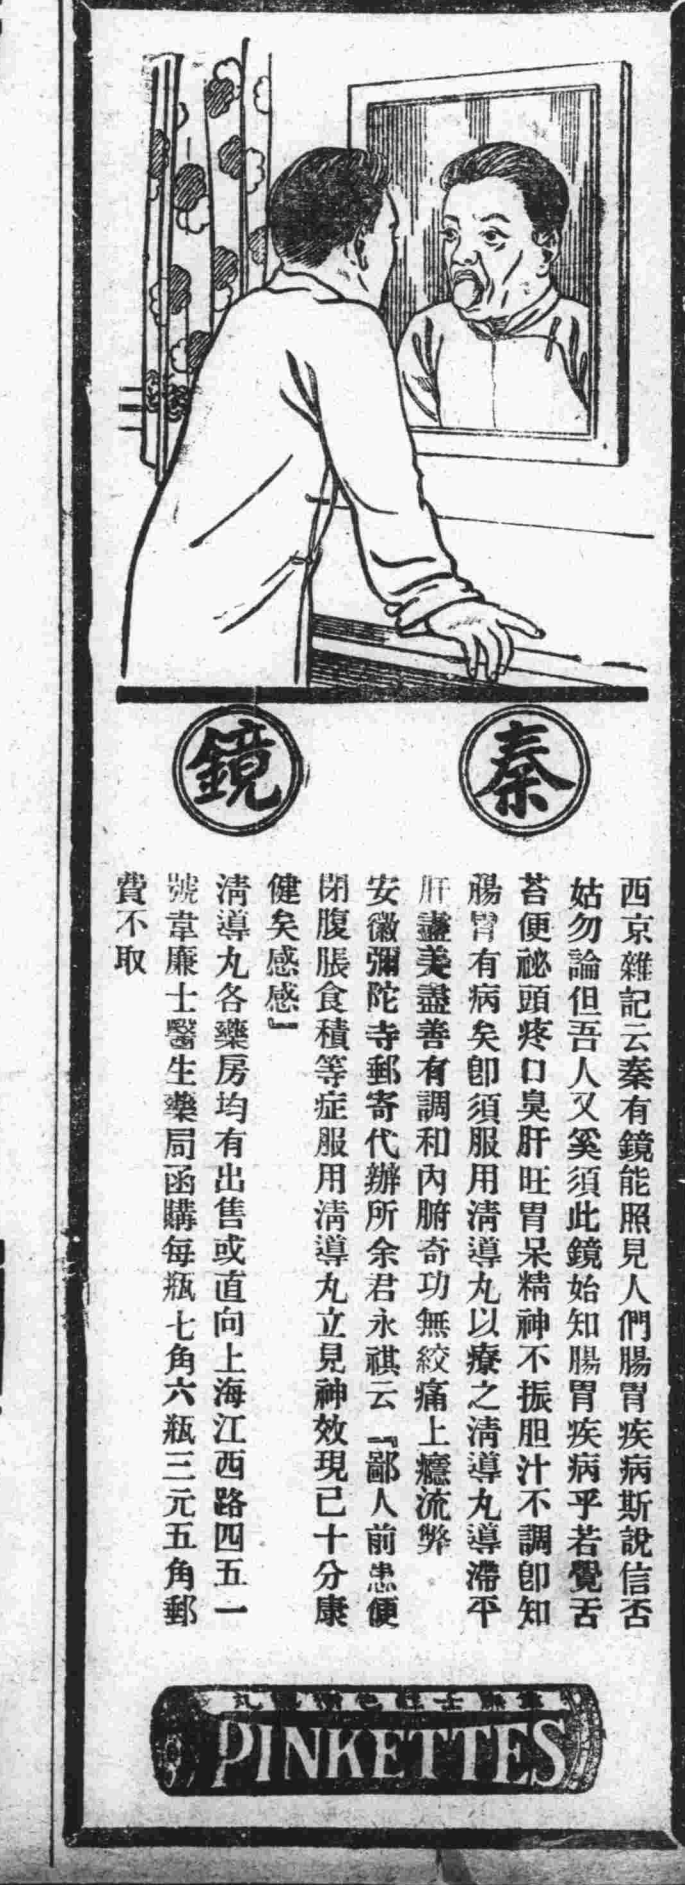 秦鏡
西京雜記云秦有鏡能照見人們腸胃疾病斯說信否
姑勿論但吾人又奚須此鏡始知腸胃疾病乎若覺舌
苔便祕頭疼口臭肝旺胃呆精神不振胆汁不調卽知
腸胃有病矣卽須服用清導丸以療之清導丸導滯平
肝盡美盡善有調和內腑奇功無絞痛上癮流弊
安徽彌陀寺郵寄代辦所余君永祺云『鄙人前患便
閉腹脹食積等症服用清導丸立見神效現已十分康
健矣感感』
清導丸各藥房均有出售或直向上海江西路四五一
號韋廉士醫生藥局函購每瓶七角六瓶三元五角郵
費不取
PINKETTES